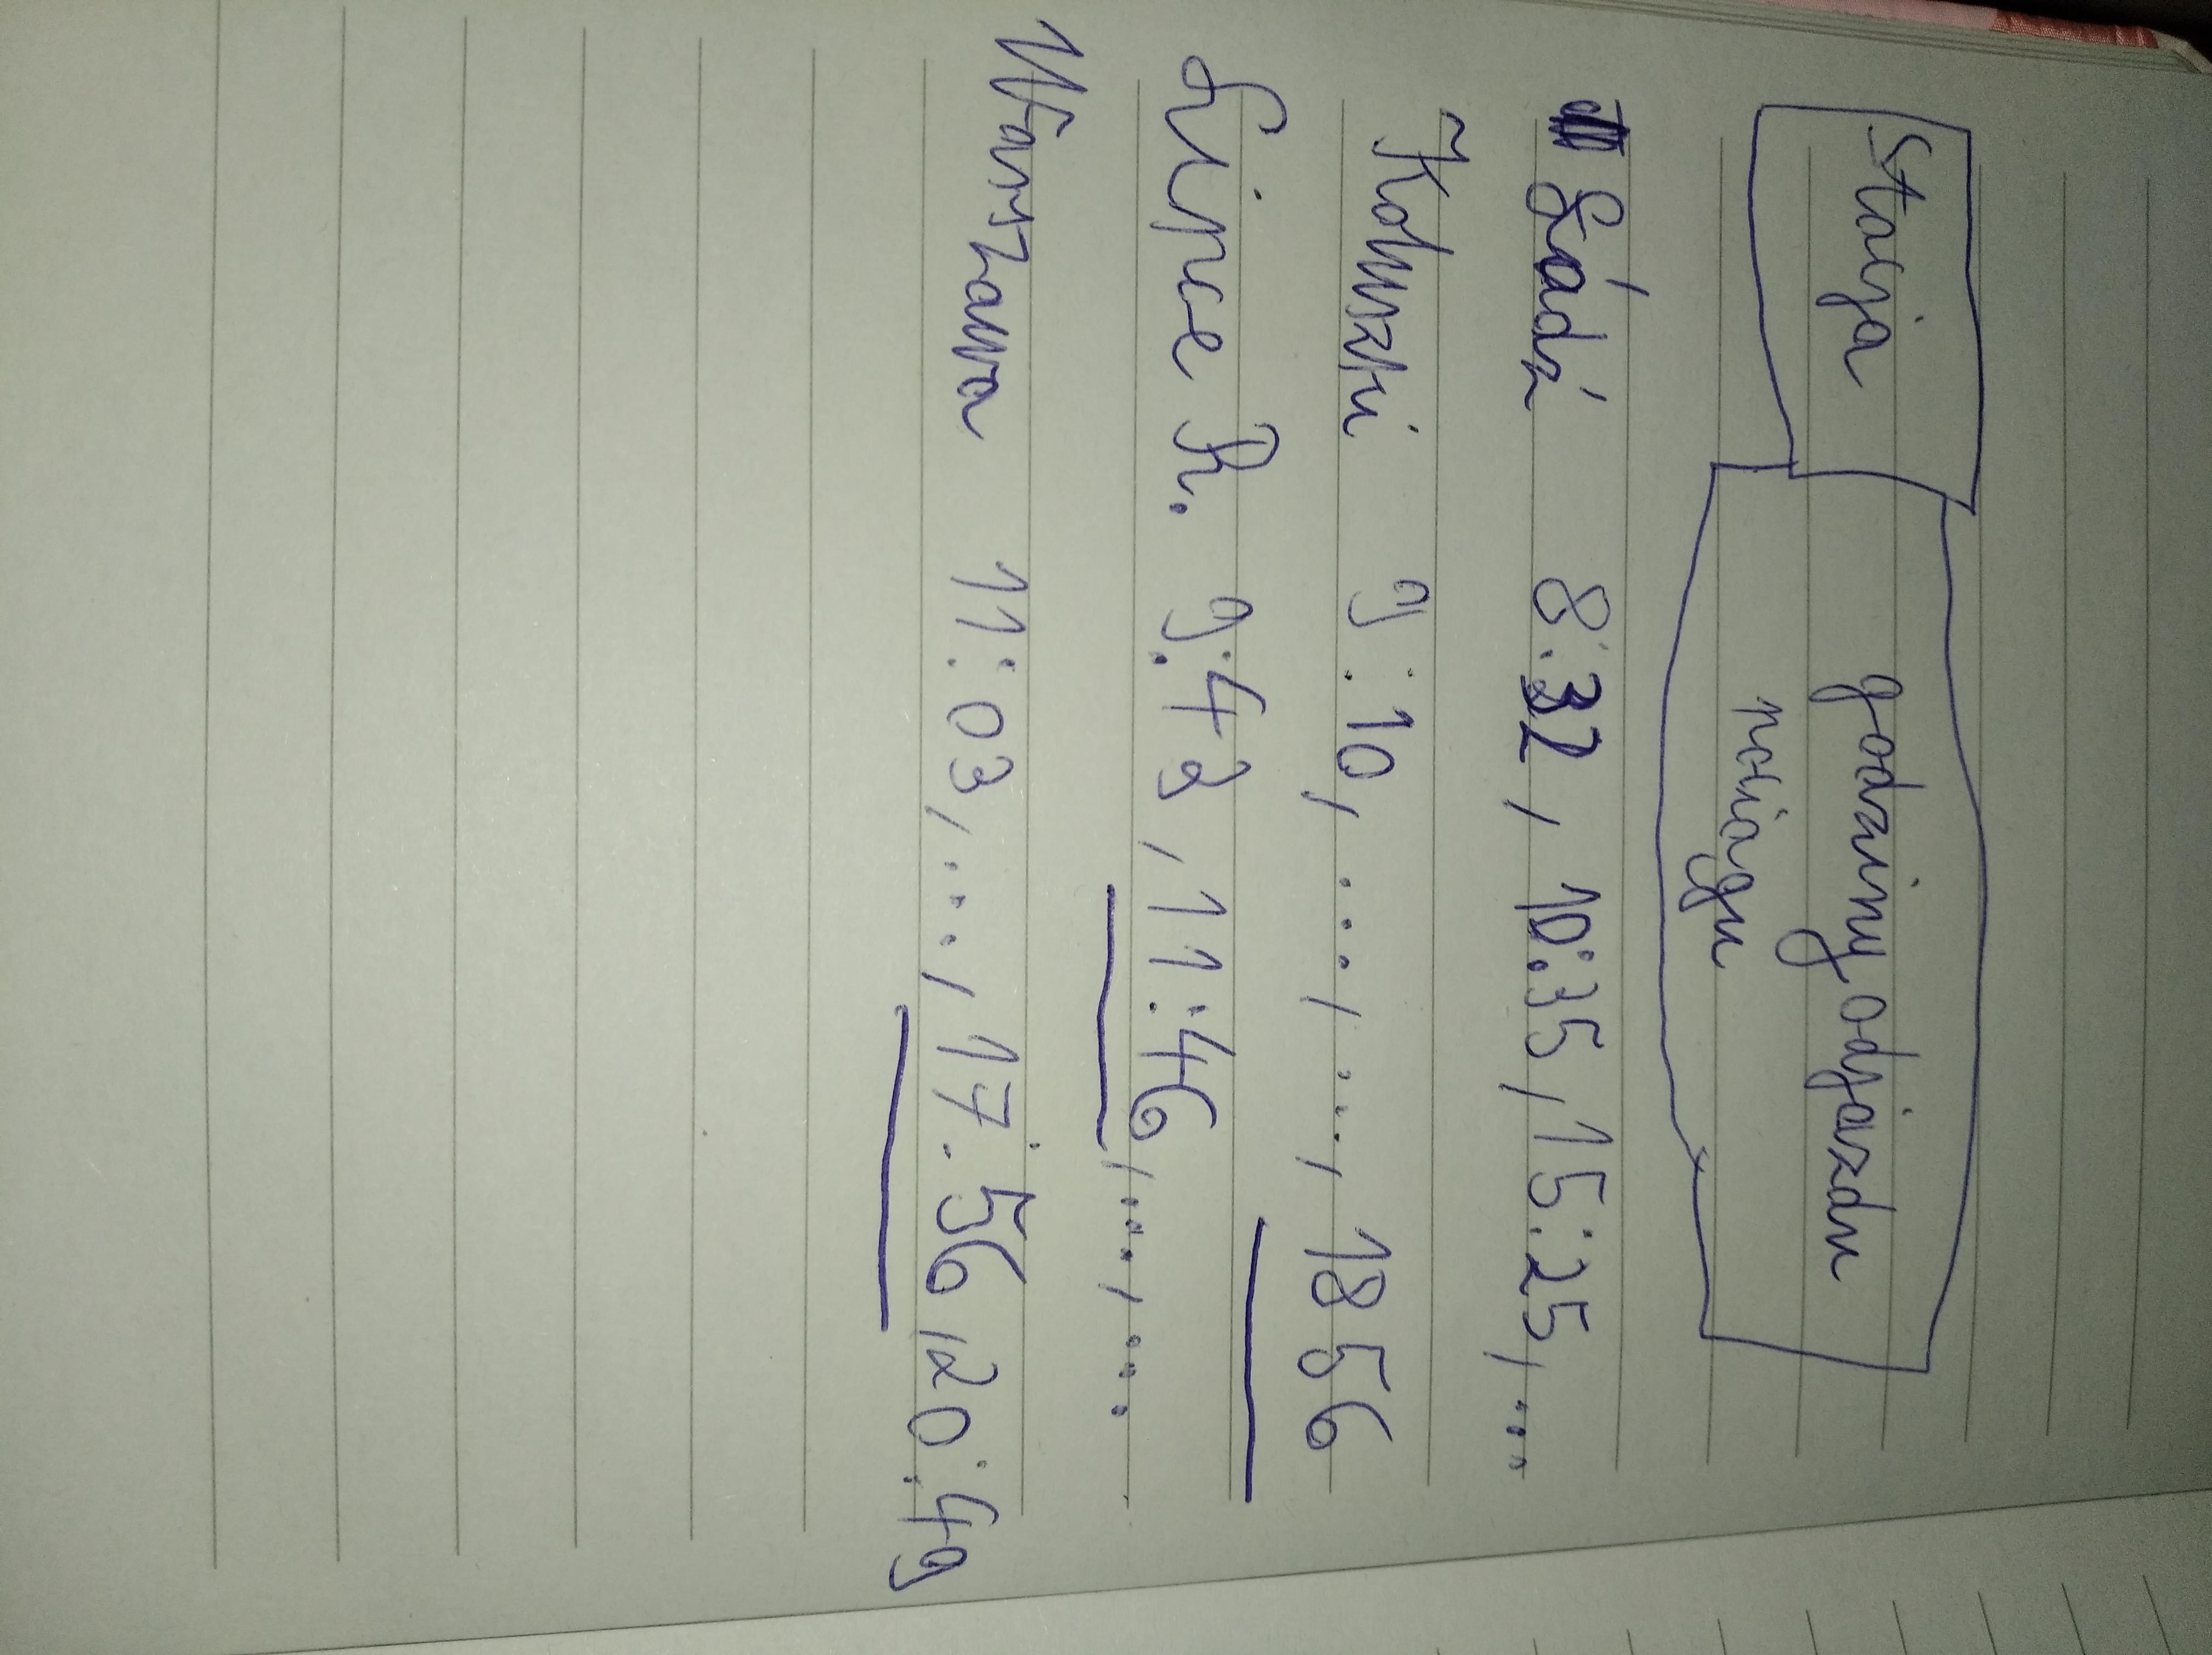 Stacja godziny odjazdu
pociągu
Łódź 8:32, 10:35, 15:25, ...
Koluszki 9:10, ..., ..., 18 56
Lipce R. 9:43, 11:46, ..., ...
Warszawa 11:03, ..., 17:56, 20:49